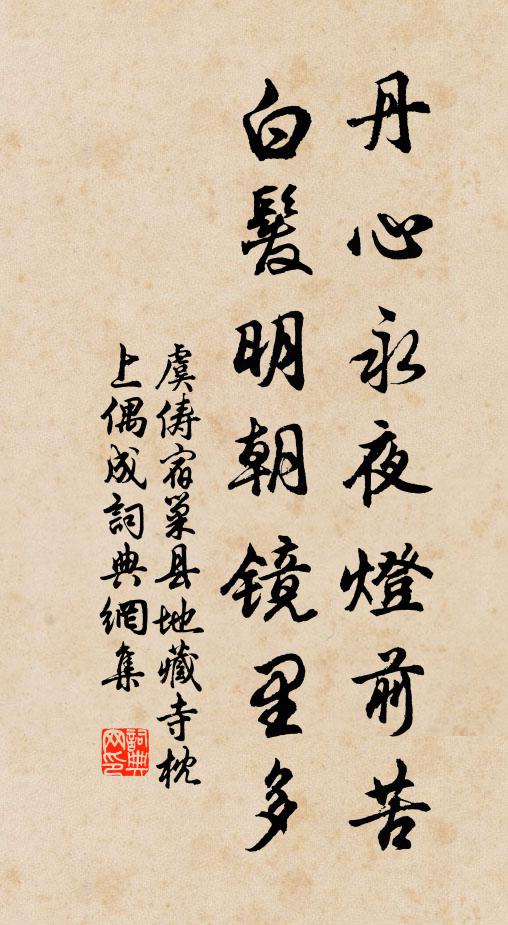 丹心永夜燈前苦
白髮明朝镜里多
虞俦宿巢县地藏寺枕
上偶成詞典網集
詞典
网印